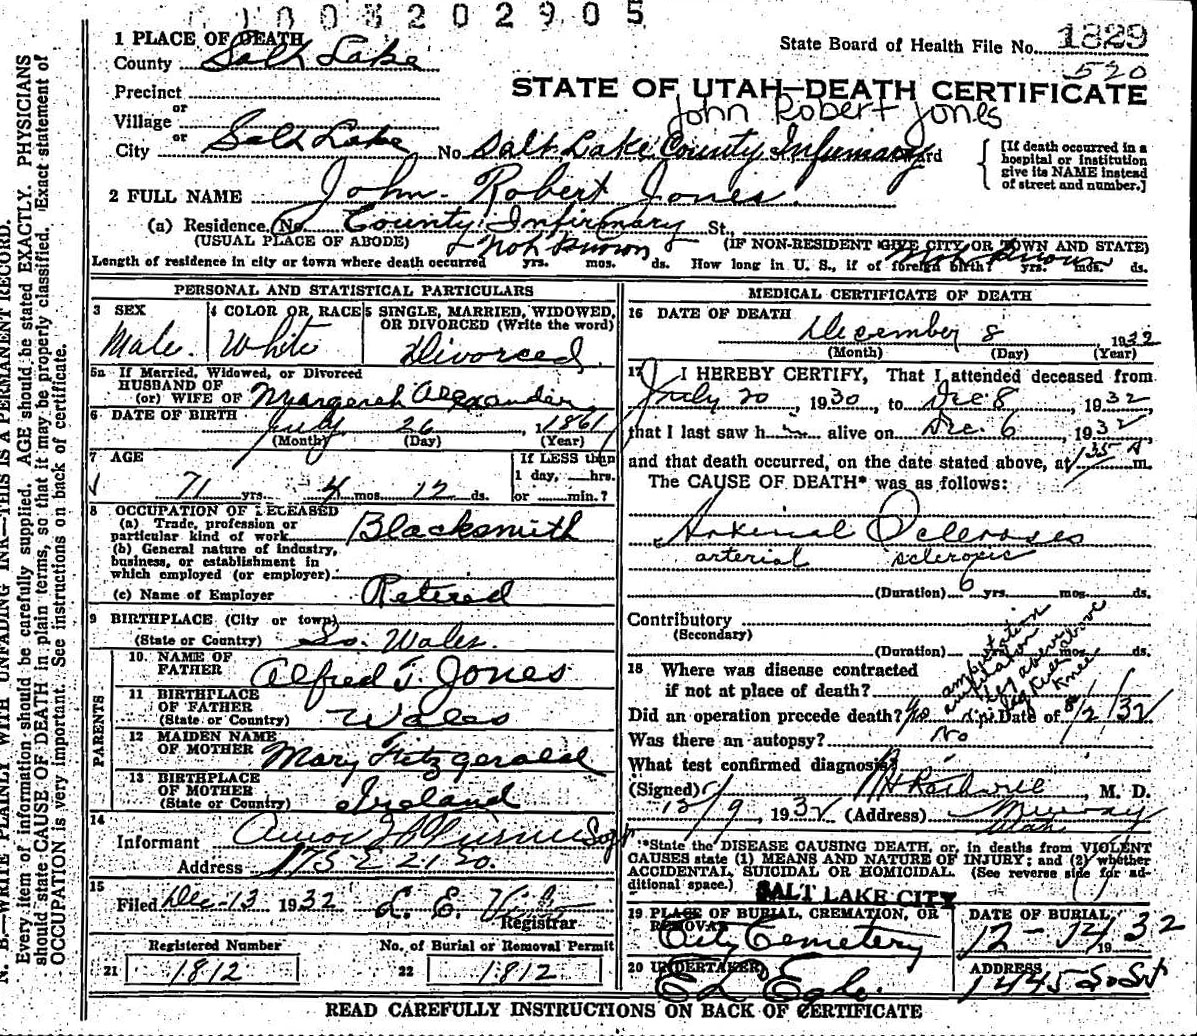 1003202905
1 PLACE OF DEATH
County Salt Lake
State Board of Health File No. 1829
520
Precinct
or
Village
or
City Salt Lake No. Salt Lake County Infirmary Ward
STATE OF UTAH—DEATH CERTIFICATE
John Robert Jones
[If death occurred in a
hospital or institution
give its NAME instead
of street and number.]
2 FULL NAME John Robert Jones
(a) Residence. No. County Infirmary St.,
(USUAL PLACE OF ABODE) (IF NON-RESIDENT GIVE CITY OR TOWN AND STATE)
Length of residence in city or town where death occurred Not Known yrs. mos. ds. How long in U. S., if of foreign birth? Not Known yrs. mos. ds.
PERSONAL AND STATISTICAL PARTICULARS
3 SEX
Male.
4 COLOR OR RACE
White
5 SINGLE, MARRIED, WIDOWED,
OR DIVORCED (Write the word)
Divorced
5a If Married, Widowed, or Divorced
HUSBAND OF
(or) WIFE OF Margerah Alexander
6 DATE OF BIRTH July 26 1861
(Month) (Day) (Year)
7 AGE
71 yrs. 4 mos. 12 ds.
If LESS than
1 day, hrs.
or min.?
8 OCCUPATION OF DECEASED
(a) Trade, profession or
particular kind of work Blacksmith
(b) General nature of industry,
business, or establishment in
which employed (or employer)
(c) Name of Employer Retired
9 BIRTHPLACE (City or town)
(State or Country) So. Wales
PARENTS
10 NAME OF
FATHER Alfred T. Jones
11 BIRTHPLACE
OF FATHER
(State or Country) Wales
12 MAIDEN NAME
OF MOTHER Mary Fitzgerald
13 BIRTHPLACE
OF MOTHER
(State or Country) Ireland
14
Informant
Address 175 E 21 So.
15
Filed Dec-13 1932 L. E.
Registrar
Registered Number
21 1812
No. of Burial or Removal Permit
22 1812
MEDICAL CERTIFICATE OF DEATH
16 DATE OF DEATH
December 8, 1932
(Month) (Day) (Year)
17 I HEREBY CERTIFY, That I attended deceased from
July 20, 1930, to Dec 8, 1932,
that I last saw h alive on Dec. 6, 1932,
and that death occurred, on the date stated above, at 1:35 A m.
The CAUSE OF DEATH* was as follows:
Arterial Sclerosis
arterial sclerosis
(Duration) 6 yrs. mos. ds.
Contributory
(Secondary)
(Duration) yrs. mos. ds.
18 Where was disease contracted
if not at place of death?
amputation
amputation
leg above
leg above
Knee
Did an operation precede death? Date of 8/2/32
Was there an autopsy? No
What test confirmed diagnosis?
(Signed) Rothwell, M. D.
9, 1932 (Address) Murray
Utah
*State the DISEASE CAUSING DEATH, or, in deaths from VIOLENT
CAUSES state (1) MEANS AND NATURE OF INJURY; and (2) whether
ACCIDENTAL, SUICIDAL OR HOMICIDAL. (See reverse side for ad-
ditional space.)
SALT LAKE CITY
19 PLACE OF BURIAL, CREMATION, OR
REMOVAL
City Cemetery
DATE OF BURIAL
12-14 1932
20 UNDERTAKER
ADDRESS
1445 So St
READ CAREFULLY INSTRUCTIONS ON BACK OF CERTIFICATE
N. B.—WRITE PLAINLY WITH UNFADING INK—THIS IS A PERMANENT RECORD.
Every item of information should be carefully supplied. AGE should be stated EXACTLY. PHYSICIANS
should state CAUSE OF DEATH in plain terms, so that it may be properly classified. Exact statement of
OCCUPATION is very important. See instructions on back of certificate.